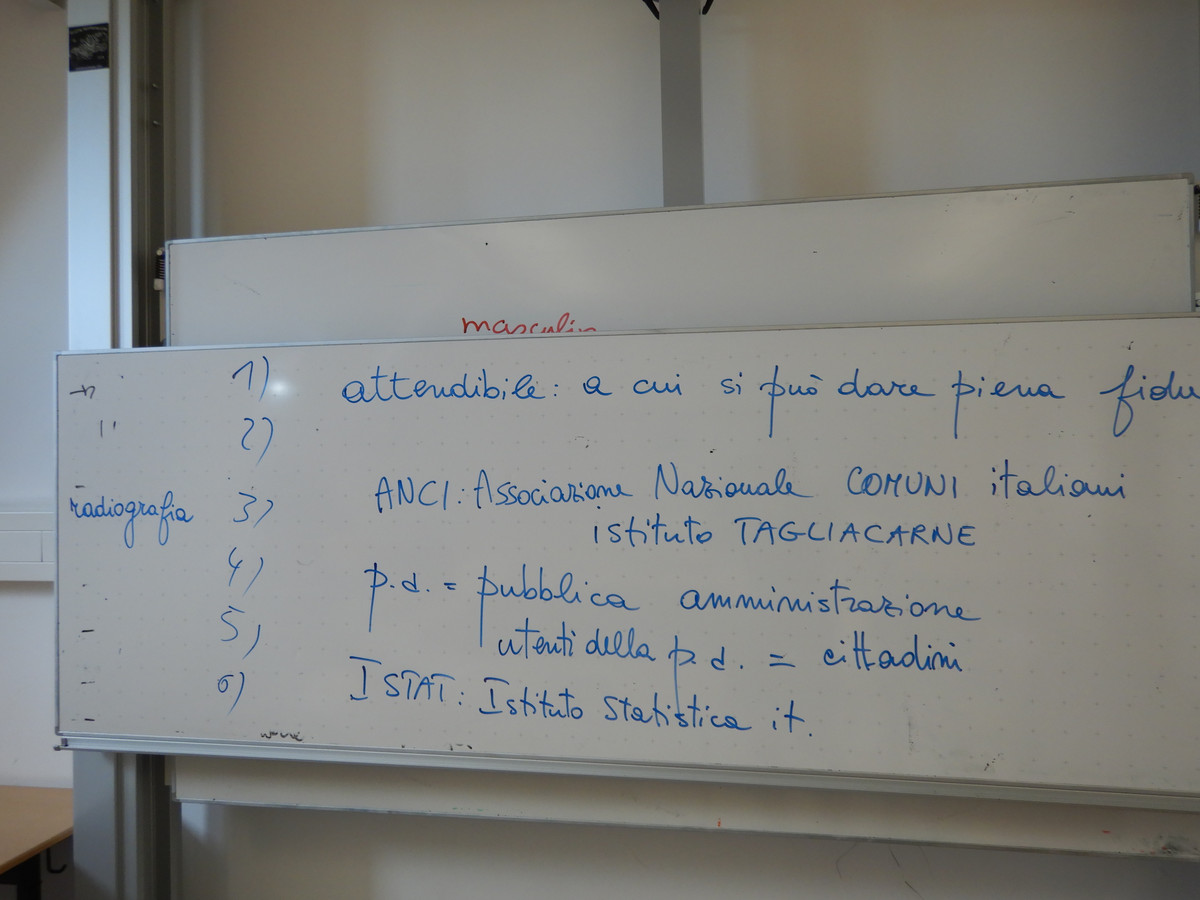 masculin
1) attendibile: a cui si può dare piena fidu
2)
radiografia 3) ANCI: Associazione Nazionale COMUNI italiani
istituto TAGLIACARNE
4) p.a. = pubblica amministrazione
5) utenti della p.a. = cittadini
6) ISTAT: Istituto Statistica it.